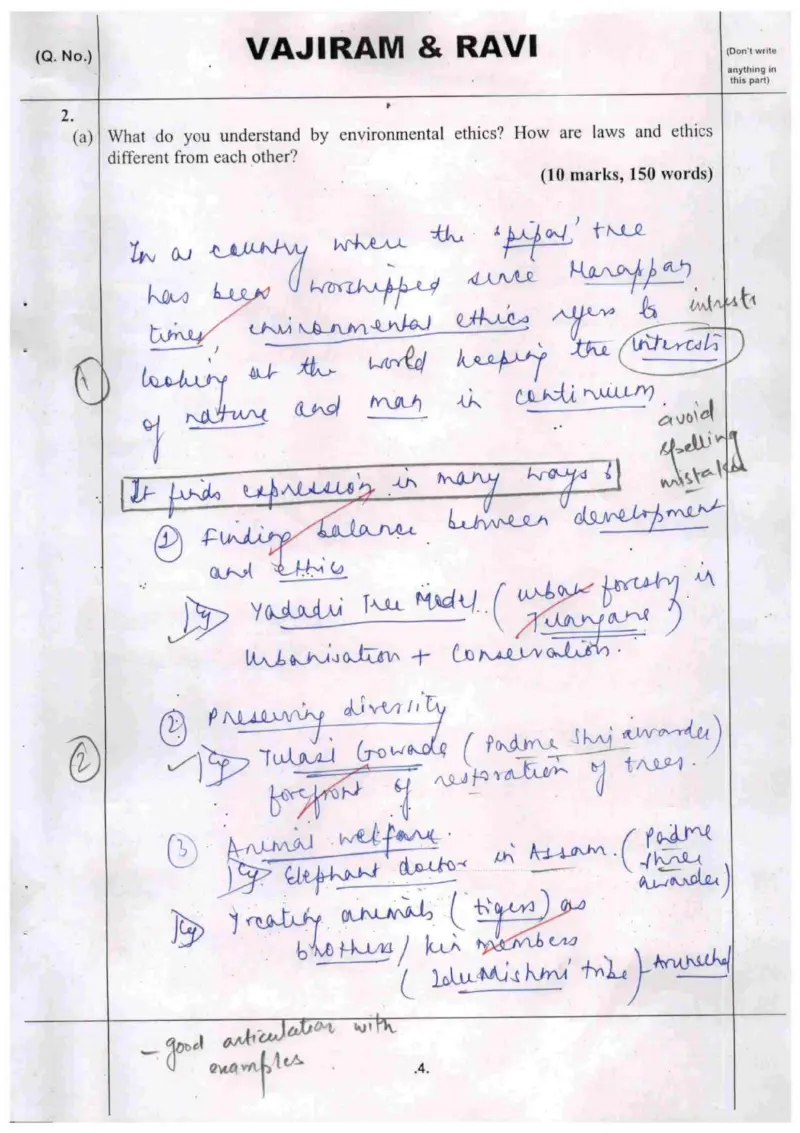 (Q. No.)
VAJIRAM & RAVI
(Don't write
anything in
this part)
2.
(a) What do you understand by environmental ethics? How are laws and ethics
different from each other?
(10 marks, 150 words)
In a country where the 'pipal' tree
has been worshipped since Harappan
times, environmental ethics refers to
looking at the world keeping the interests
of nature and man in continuum.
1
avoid
spelling
mistakes
It finds expression in many ways :
① Finding balance between development
and ethics
Eg Yadadri Tree Model (urban forestry in
Telangana)
Urbanisation + Conservation.
② Preserving diversity
Eg Tulasi Gowada (Padma Shri awardee)
forefront of restoration of trees.
2
③ Animal welfare.
Eg Elephant doctor in Assam. (Padma
Shree
awardee)
Eg Treating animals (tigers) as
brothers / kin members
(Idu Mishmi tribe) - Arunachal
- good articulation with
examples
.4.